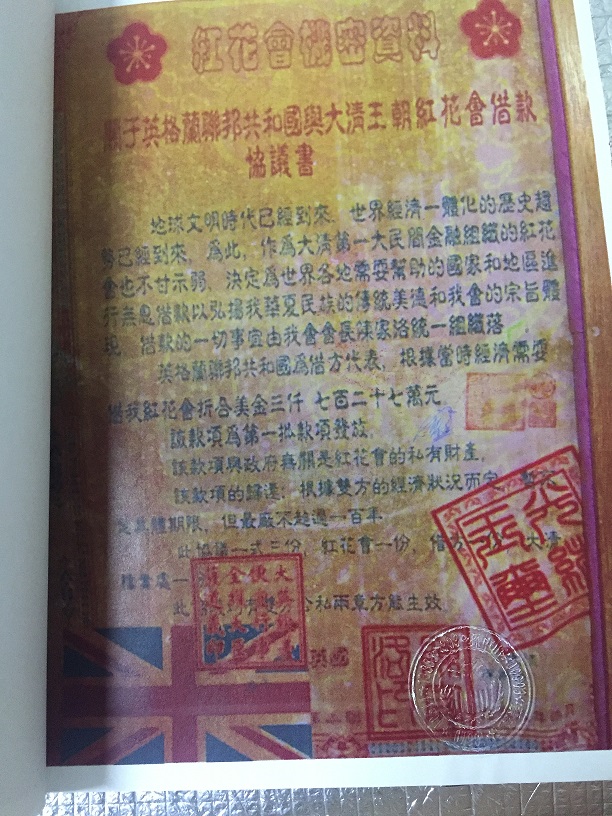 紅花會機密資料
關于英格蘭聯邦共和國與大清王朝紅花會借款
協議書
地球文明時代已經到來，世界經濟一體化的歷史趨
勢已經到來，爲此，作爲大清第一大民間金融組織的紅花
會也不甘示弱，決定爲世界各地需要幫助的國家和地區進
行無息借款以弘揚我華夏民族的傳統美德和我會的宗旨體
現，借款的一切事宜由我會會長陳家洛統一組織落
英格蘭聯邦共和國爲借方代表，根據當時經濟需要
借我紅花會折合美金三仟 七百二十七萬元，
該款項爲第一批款項發放，
該款項與政府無關是紅花會的私有財產，
該款項的歸還，根據雙方的經濟狀況而定，暫
具體期限，但最 不超過一百年
此協議一式三份，紅花會一份，借方 大清
一
此 公私兩章方能生效
英國